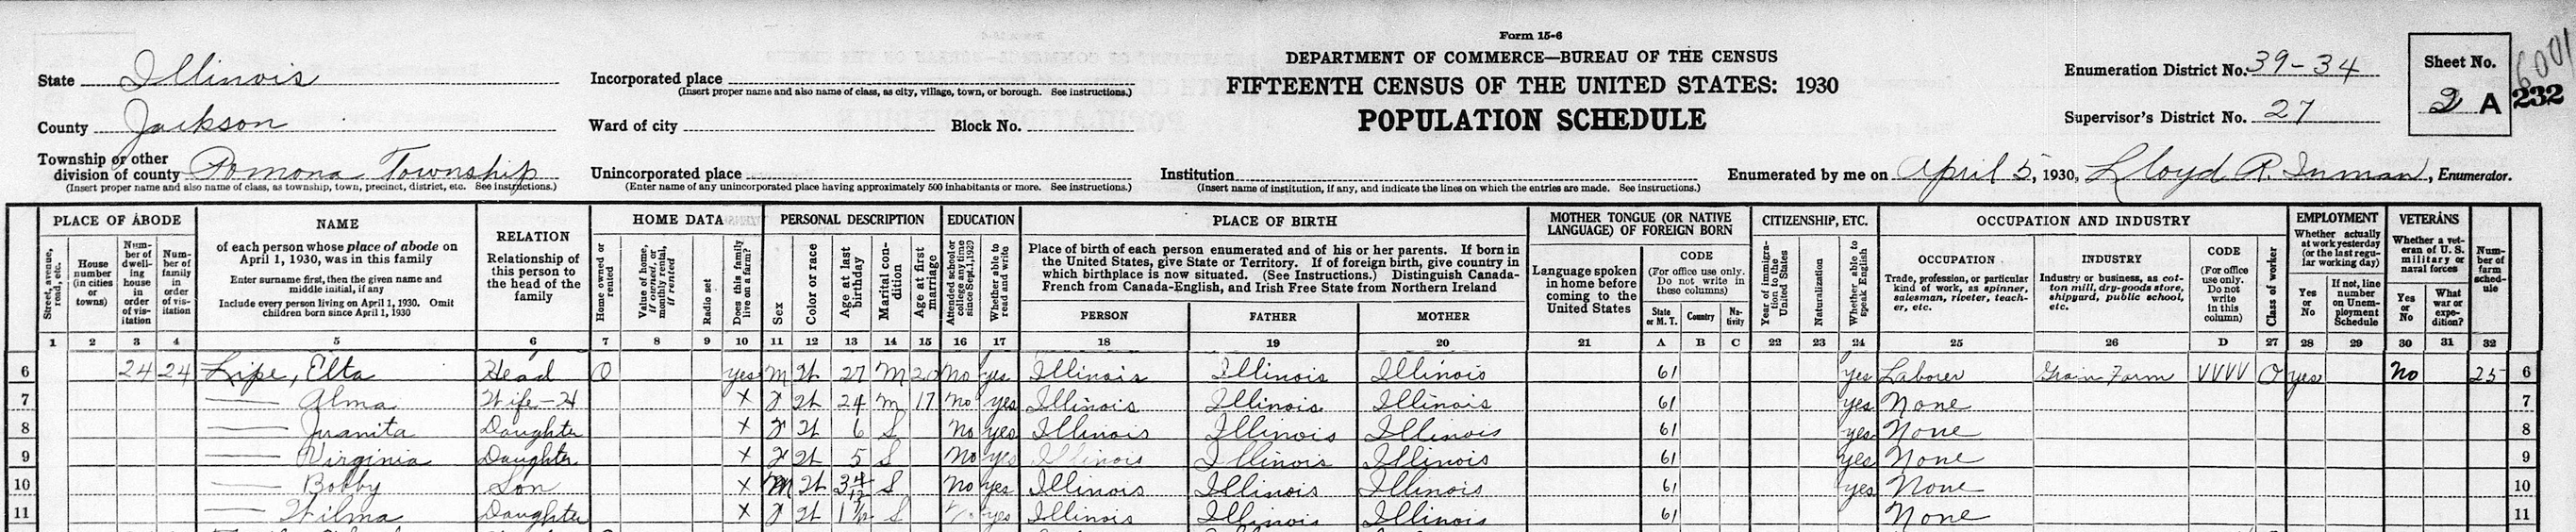 Form 15-6
DEPARTMENT OF COMMERCE—BUREAU OF THE CENSUS
FIFTEENTH CENSUS OF THE UNITED STATES: 1930
POPULATION SCHEDULE
State Illinois
County Jackson
Township or other division of county Pomona Township
(Insert proper name and also name of class, as township, town, precinct, district, etc. See instructions.)
Incorporated place
(Insert proper name and also name of class, as city, village, town, or borough. See instructions.)
Ward of city Block No.
Unincorporated place
(Enter name of any unincorporated place having approximately 500 inhabitants or more. See instructions.)
Institution
(Insert name of institution, if any, and indicate the lines on which the entries are made. See instructions.)
Enumeration District No. 39-34
Supervisor's District No. 27
Sheet No.
2 A
6001
232
Enumerated by me on April 5, 1930, Lloyd R. Inman, Enumerator.
PLACE OF ABODE NAME RELATION HOME DATA PERSONAL DESCRIPTION EDUCATION PLACE OF BIRTH MOTHER TONGUE (OR NATIVE LANGUAGE) OF FOREIGN BORN CITIZENSHIP, ETC. OCCUPATION AND INDUSTRY EMPLOYMENT VETERANS
Street, avenue, road, etc.
House number (in cities or towns)
Number of dwelling house in order of visitation
Number of family in order of visitation
of each person whose place of abode on April 1, 1930, was in this family
Enter surname first, then the given name and middle initial, if any
Include every person living on April 1, 1930. Omit children born since April 1, 1930
Relationship of this person to the head of the family
Home owned or rented
Value of home, if owned, or monthly rental, if rented
Radio set
Does this family live on a farm?
Sex
Color or race
Age at last birthday
Marital condition
Age at first marriage
Attended school or college any time since Sept. 1, 1929
Whether able to read and write
Place of birth of each person enumerated and of his or her parents. If born in the United States, give State or Territory. If of foreign birth, give country in which birthplace is now situated. (See Instructions.) Distinguish Canada-French from Canada-English, and Irish Free State from Northern Ireland
PERSON FATHER MOTHER
Language spoken in home before coming to the United States
CODE
(For office use only. Do not write in these columns)
State or M. T. Country Nativity
Year of immigration to the United States
Naturalization
Whether able to speak English
OCCUPATION
Trade, profession, or particular kind of work, as spinner, salesman, riveter, teacher, etc.
INDUSTRY
Industry or business, as cotton mill, dry-goods store, shipyard, public school, etc.
CODE
(For office use only. Do not write in this column)
Class of worker
Whether actually at work yesterday (or the last regular working day)
Yes or No
If not, line number on Unemployment Schedule
Whether a veteran of U. S. military or naval forces
Yes or No
What war or expedition?
Number of farm schedule
1 2 3 4 5 6 7 8 9 10 11 12 13 14 15 16 17 18 19 20 21 A B C 22 23 24 25 26 D 27 28 29 30 31 32
6 24 24 Lipe, Elta Head O yes M W 27 M 20 No yes Illinois Illinois Illinois 61 yes Laborer Grain Farm VVVV O yes No 25 6
7 Alma Wife-H X F W 24 M 17 No yes Illinois Illinois Illinois 61 yes None 7
8 Juanita Daughter X F W 6 S No yes Illinois Illinois Illinois 61 yes None 8
9 Virginia Daughter X F W 5 S No yes Illinois Illinois Illinois 61 yes None 9
10 Bobby Son X M W 3 4/12 S No yes Illinois Illinois Illinois 61 yes None 10
11 Wilma Daughter X F W S yes Illinois Illinois Illinois 61 None 11